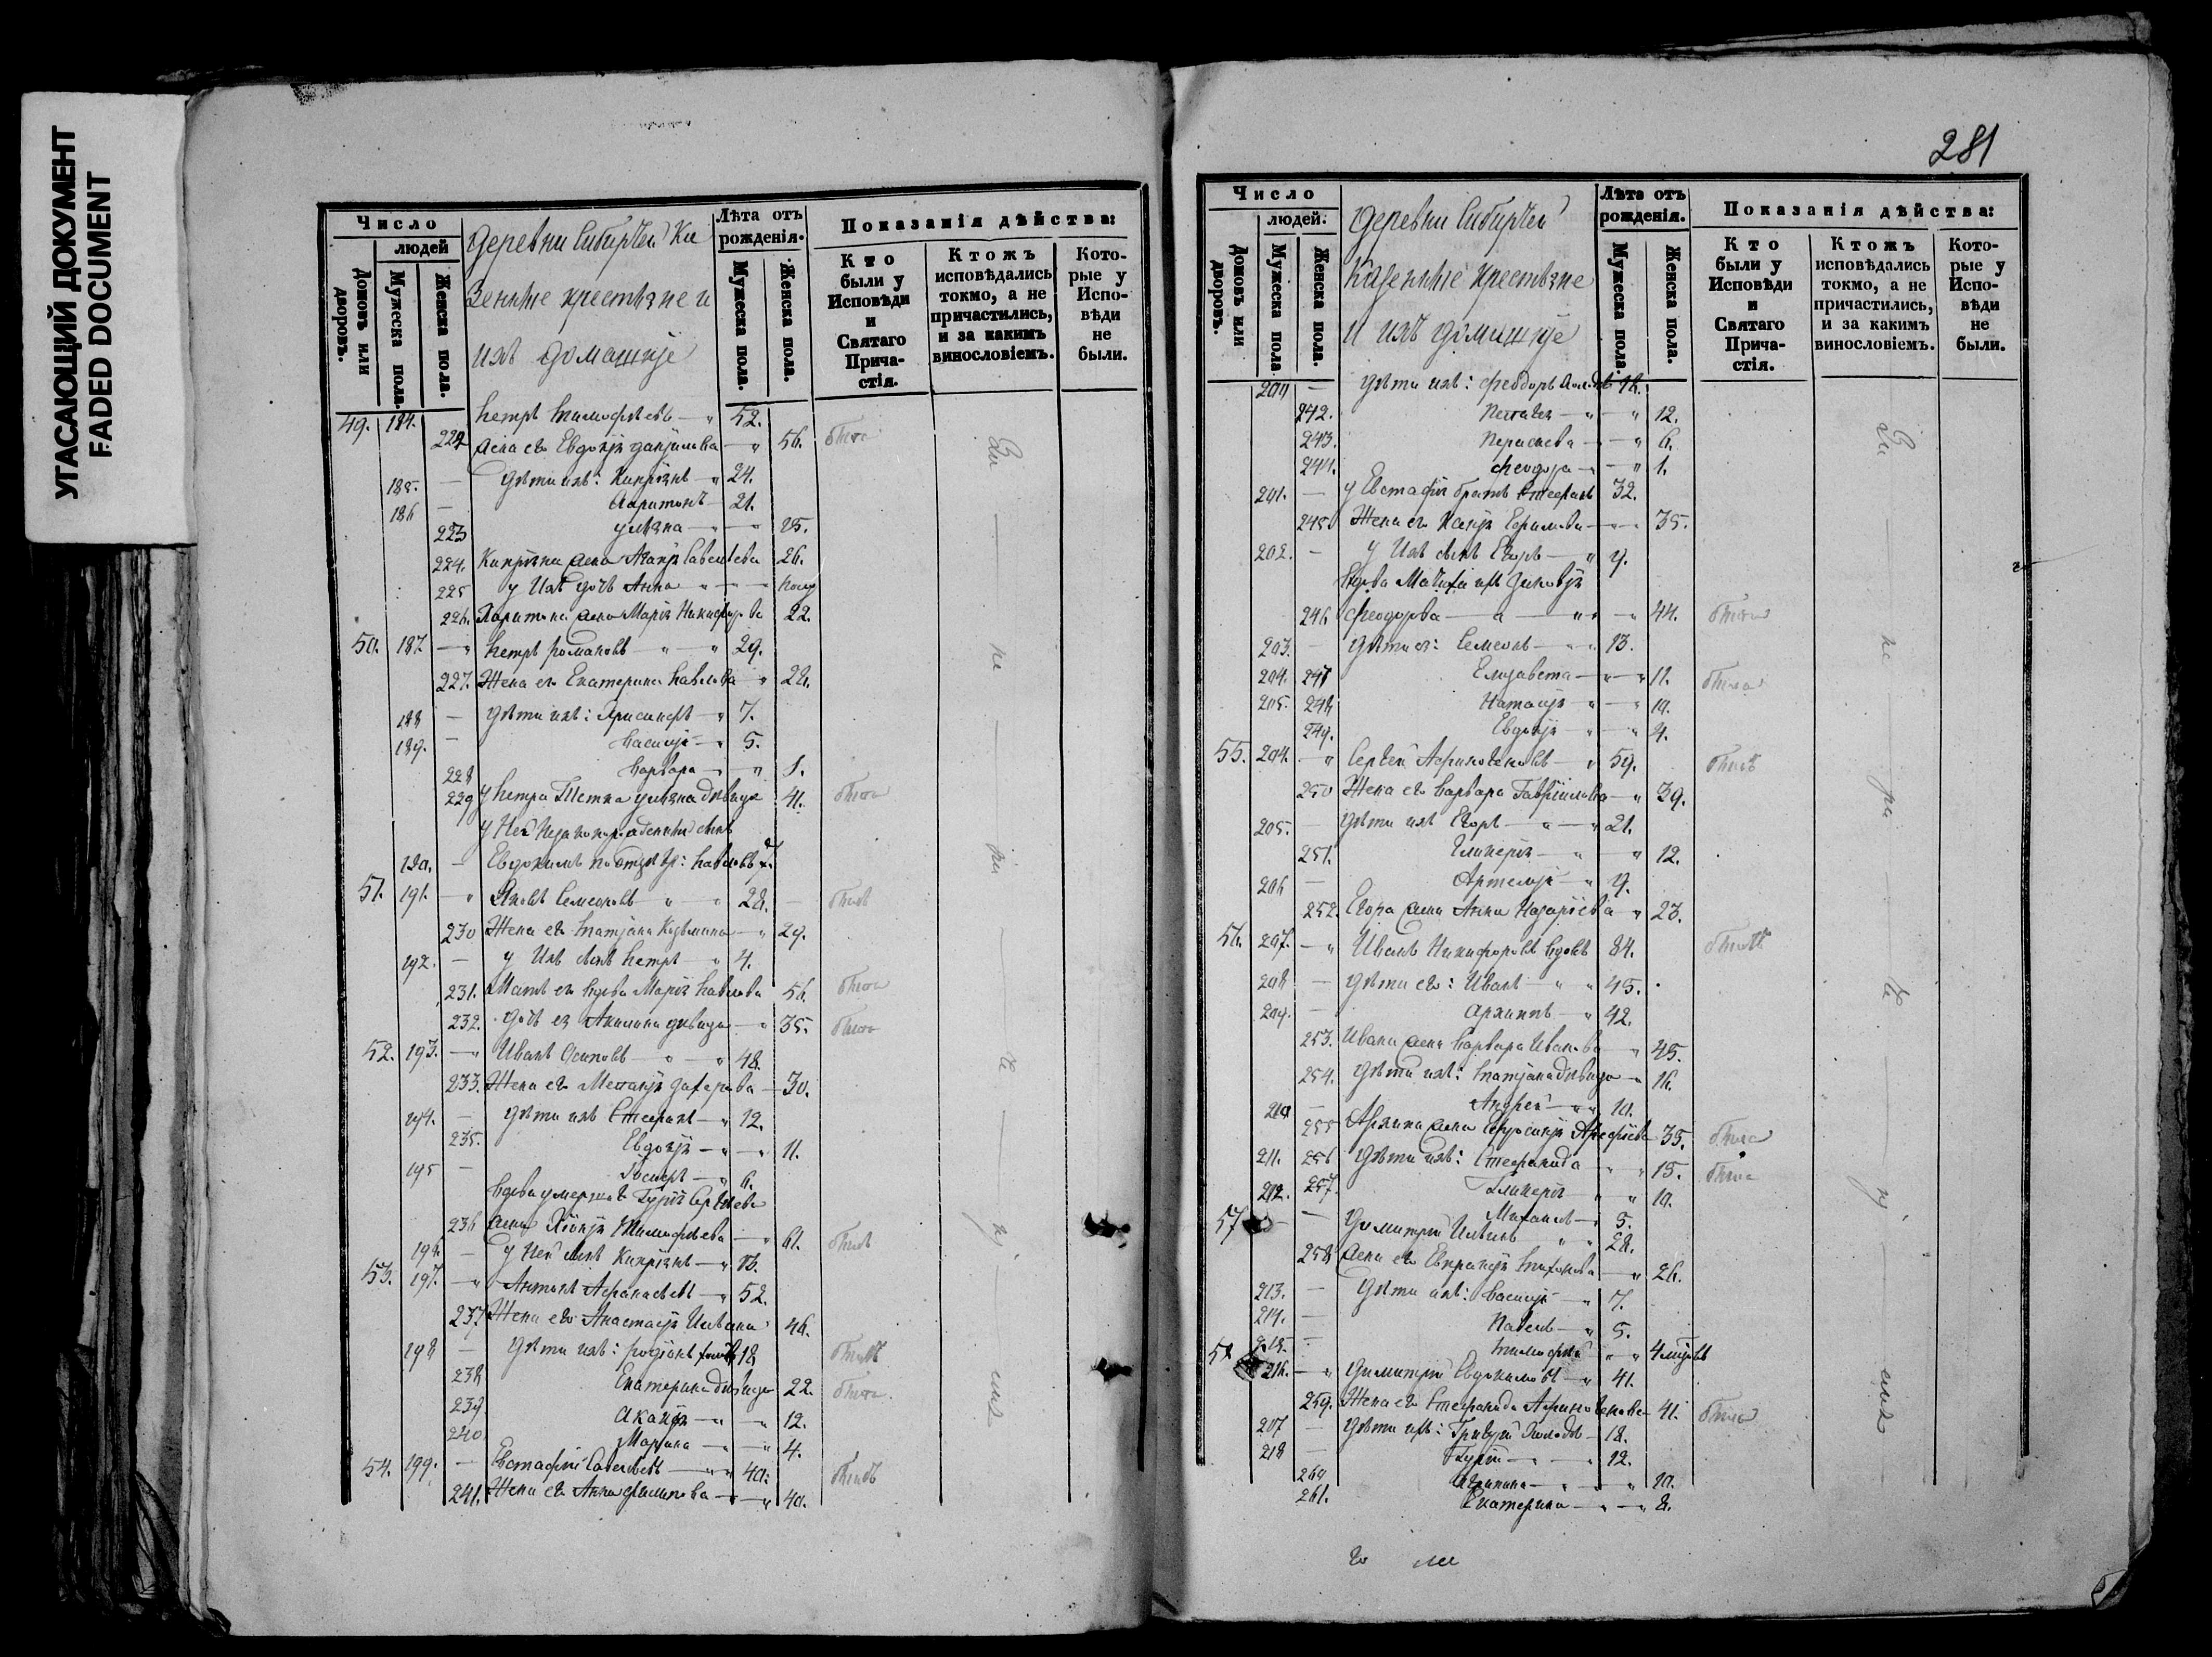 УГАСАЮЩИЙ ДОКУМЕНТ
FADED DOCUMENT
Число
людей
Домовъ или дворовъ.
Мужеска пола.
Женска пола.
Деревни Сибирчей Ка
зенные крестьяне и
ихъ домашніе
Лѣта отъ рожденія.
Мужеска пола.
Женска пола.
Показанія дѣйства:
Кто были у Исповѣди и Святаго Прича-стія.
Ктожъ исповѣдались токмо, а не причастились, и за какимъ винословіемъ.
Кото-рые у Испо-вѣди не были.
49. 184. Петръ Тимофѣевъ 52.
222 Жена его Евдокія Даніилова 56. была
185. — Дѣти ихъ: Кипріанъ 24.
186 — Харитонъ 21.
223 Ульяна 25.
224. Кипріана жена Агаѳія Савельева 26.
225 у Ихъ дочь Анна
226. Харитона жена Марія Никифорова 22.
50. 187. Петръ Романовъ 29.
227. Жена его Екатерина Павлова 28.
188 — Дѣти ихъ: Хрисанфъ 7.
189. — Василій 5.
228 Варвара 1.
229 у Петра Тетка Ульяна дѣвица 41. была
у Ней незаконнорожденный сынъ
190. — Евдокимъ по отцу Павловъ
51. 191. Яковъ Семеновъ 28. — былъ
230 Жена его Татіана Кузьмина 29.
192. — у Ихъ сынъ Петръ 4.
231. Мать его вдова Марія Павлова 56. была
232. дочь ея Акилина дѣвица 35. была
52. 193. Иванъ Осиповъ 48.
233. Жена его Меланія Захарова 30.
194. — Дѣти ихъ Стефанъ 12.
235. Евдокія 11.
195 — 6.
Вдова умершаго Гурія Сергѣева
236 жена Хіонія Тимофѣева 61.
196. — у Ней сынъ Кипріанъ 13.
53. 197. Антонъ Афанасьевъ 52.
237 Жена его Анастасія Ильина 46.
198 — Дѣти ихъ: Родіонъ холостъ 18 былъ
238 Екатерина дѣвица 22. была
239 12.
240 Марина 4.
54. 199. — Евстафій Савельевъ 40. былъ
241. Жена его Анна Филипова 40.
За не ра че ні емъ
281
Число
людей.
Домовъ или дворовъ.
Мужеска пола
Женска пола.
Деревни Сибирчей
Казенные крестьяне
и ихъ домашніе
Лѣта отъ рожденія.
Мужеска пола.
Женска пола.
Показанія дѣйства:
Кто были у Исповѣди и Святаго Прича-стія.
Ктожъ исповѣдались токмо, а не причастились, и за какимъ винословіемъ.
Кото-рые у Испо-вѣди не были.
200 — Дѣти ихъ: Феодоръ холостъ 18.
242. Пелагея 12.
243. Параскева 6.
244. Феодора 1.
201. — у Евстафія братъ Стефанъ 32.
245. Жена его Ксенія Ефимова 35.
202. — у Ихъ сынъ Егоръ 9.
246 Феодорова 44. была
203. — Дѣти ея: Семенъ 13.
204. 247 Елизавета 11. была
205. 248 Наталія 10.
249. Евдокія 4.
55. 204. Сергей Афиногеновъ 59. былъ
250 Жена его Варвара Гавриилова 39.
205. — Дѣти ихъ Егоръ 21.
251. Гликерія 12.
206 — Артемій 9.
252. Егора жена Анна Назаріева 23.
56. 207. Иванъ Никифоровъ вдовъ 84. былъ
208 — Дѣти его: Иванъ 45.
209. — Архипъ 42.
253. Ивана жена Варвара Иванова 45.
254. Дѣти ихъ: Татіана дѣвица 16.
210 — Андрей 10.
255 Архипа жена Ефросинія Арефіева 35. была
211. 256 Дѣти ихъ: Стефанида 15. была
212. 257. Гликерія 10.
— Михаилъ 5.
57 Димитрій Ильинъ 28.
258 Жена его Евпраксія Тихонова 26.
213. — Дѣти ихъ: Василій 7.
214. — Павелъ 5.
215. — Тимофей
58 216. Димитрій Евдокимовъ 41.
259. Жена его Стефанида Афиногенова 41. была
207 — Дѣти ихъ: Григорій холостъ 18.
218 — Гурій 12.
260 Акилина 10.
261. Екатерина 8.
За не ра че ні емъ